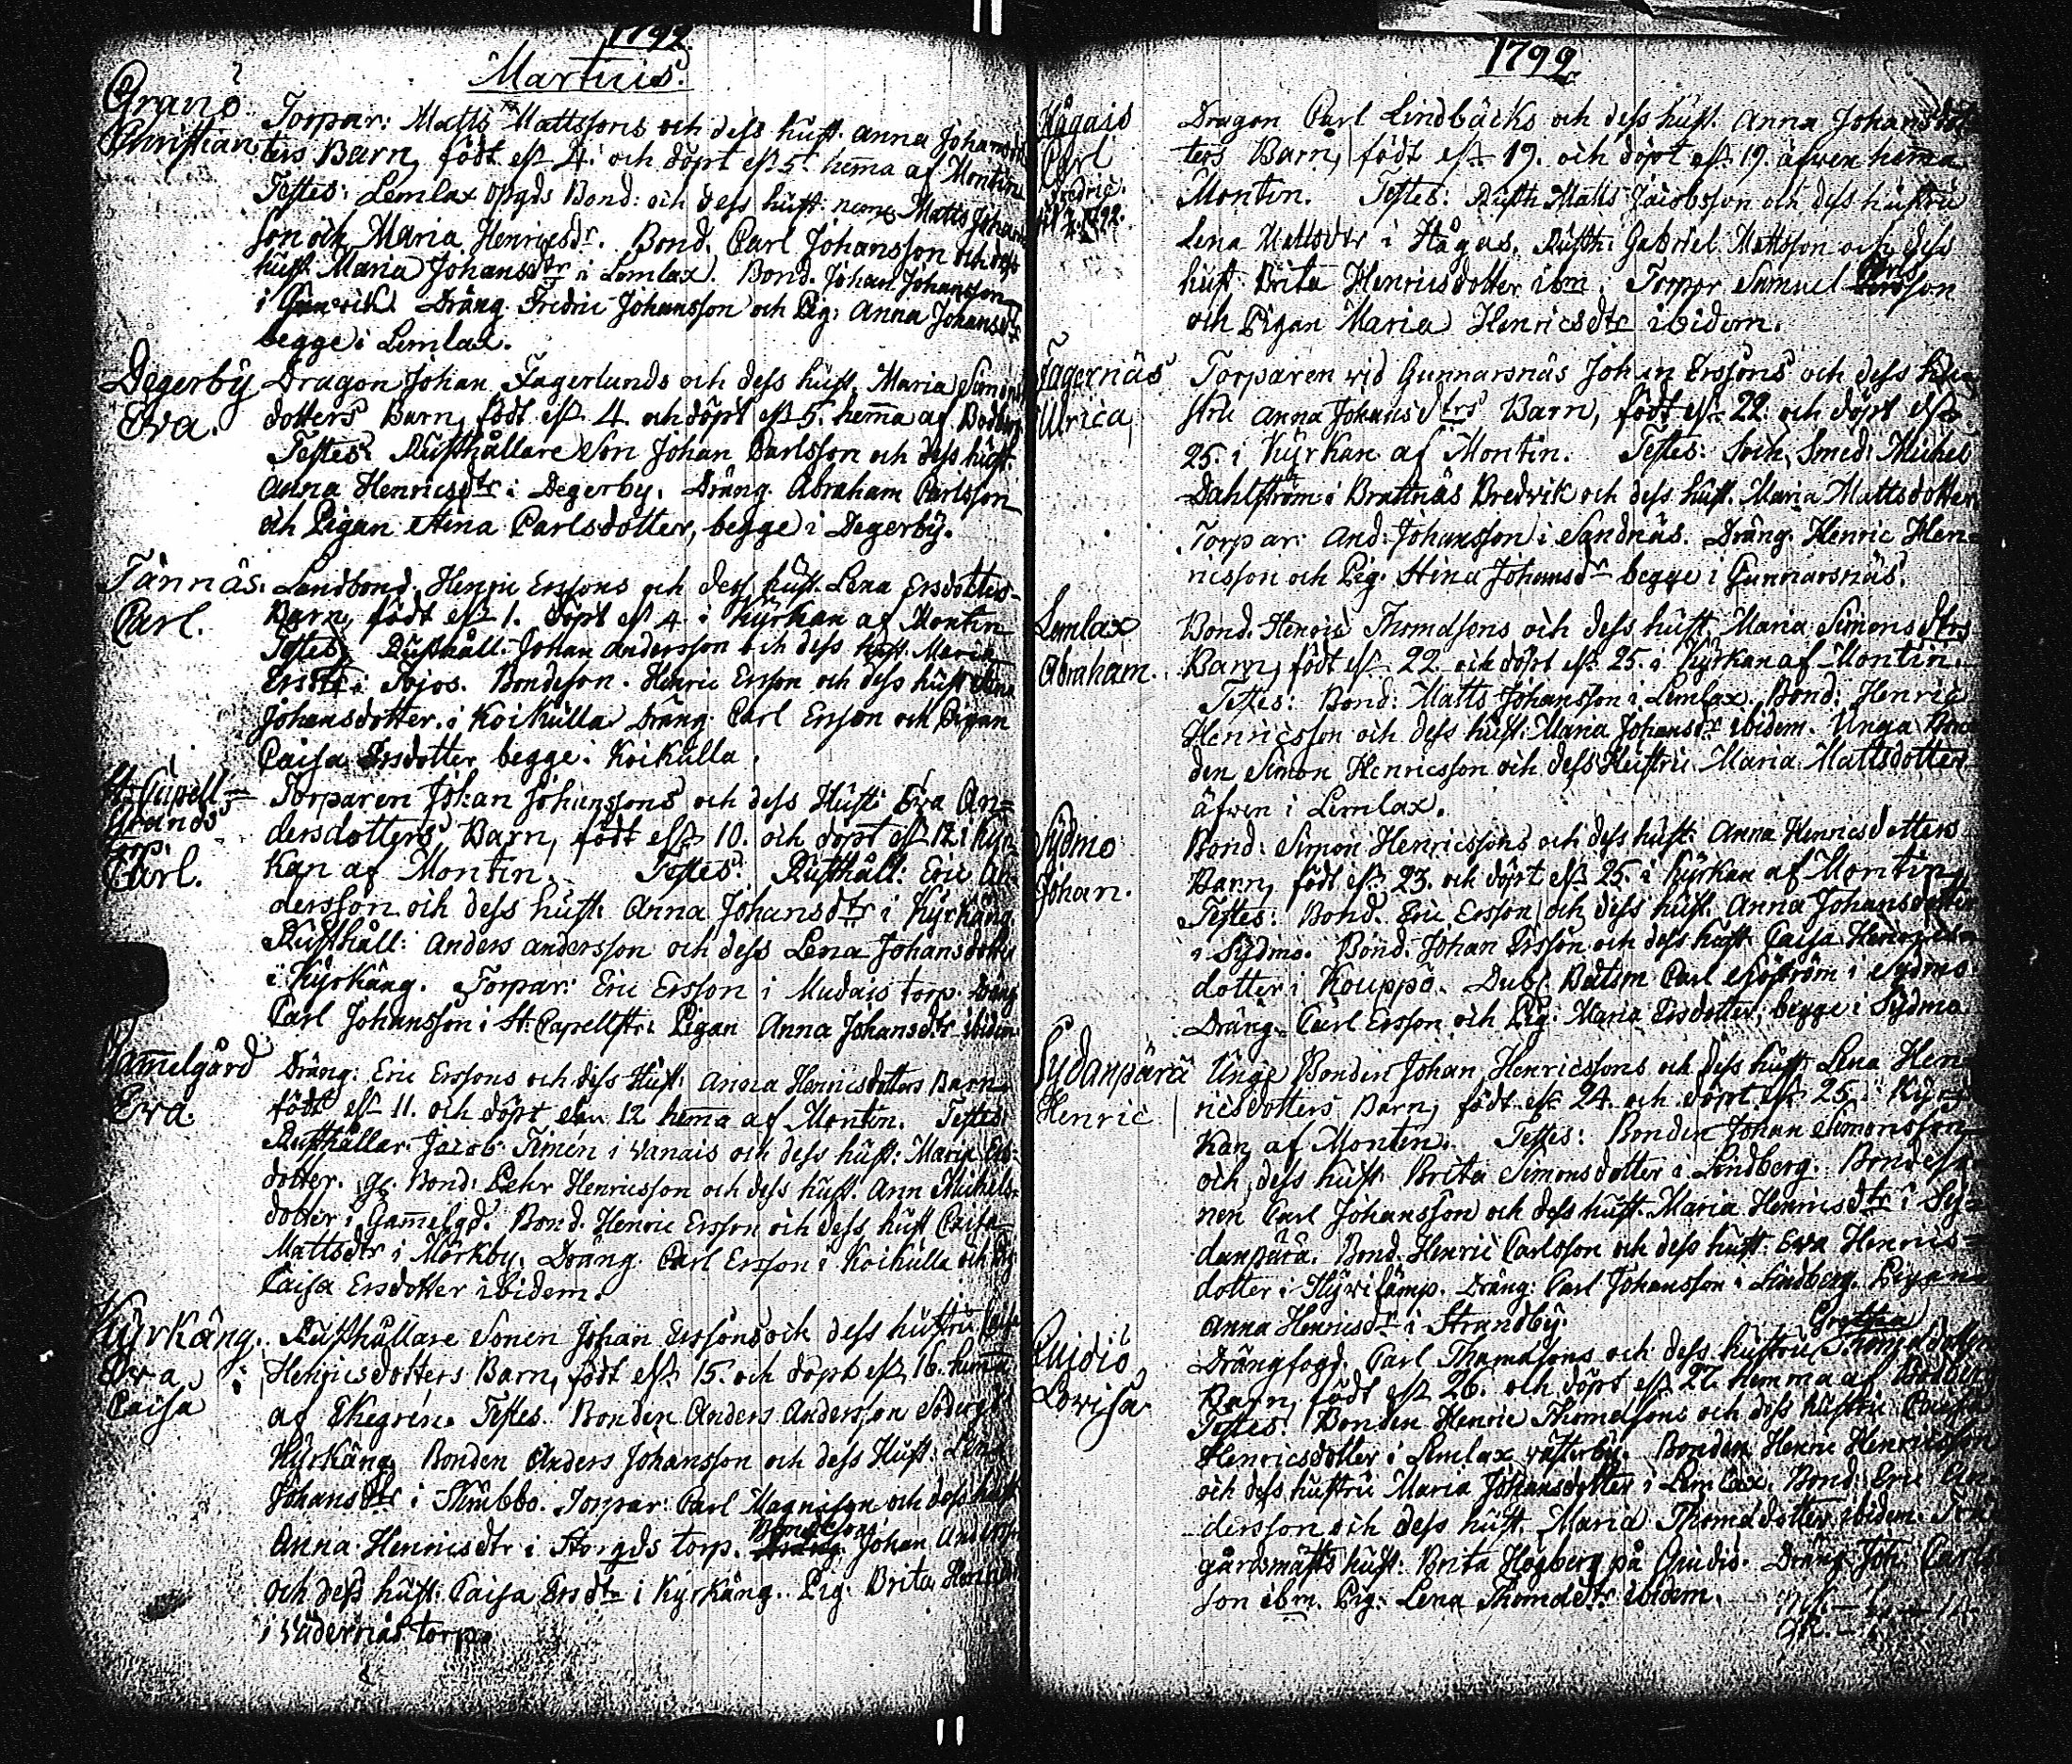 1792
Martius.
Granö Torpar: Matts Mattssons och dess hust. Anna Johans
Christian ters Barn, född est 4. och döpt est 5. hem̄a af Montin
Testes: Lemlax Bond: och dess hust: Matts Johans
son och Maria Henricsdr. Bond. Carl Johansson och dess
hust. Maria Johansdtr i Lemlax. Bond. Johan Johansson
i Dräng Fredric Johansson och Pig: Anna Johansdtr
begge i Lemlax.
Degerby Dragon Johan Fagerlunds och dess hust. Maria Simons
Eva. dotters Barn, född est 4. och döpt est 5. hem̄a af
Testes: Rusthållare Son Johan Carlsson och dess hust.
Anna Henricsdtr i Degerby. Dräng Abraham Carlsson
och Pigan Stina Carlsdotter, begge i Degerby.
Tännäs. Landbond. Henric Erssons och dess hust. Lena Ersdotters
Carl. Barn, född est 1. döpt est 4 i Kyrkan af Montin
Testes: Rusthåll. Johan Andersson och dess hust. Maria
Ersdtr i Bondeson. Henric Ersson och dess hust
Johansdotter i Koikulla Dräng Carl Ersson och Pigan
Caisa Ersdotter begge i Koikulla.
St. Capell Torparen Johan Johanssons och dess Hust: Eva An=
Strands dersdotters Barn, född est 10. och döpt est 12 i Kyr
torp.
Carl. kan af Montin. Testes: Rusthåll: Eric An
dersson och dess hust. Anna Johansdtr i Kyrkäng
Rusthåll: Anders Andersson och dess Lena Johansdotter
i Kyrkäng. Torpar: Eric Ersson i Mudais torp. Dräng
Carl Johansson i St. Capellstr: Pigan Anna Johansdtr ibidem
Gam̄elgård Dräng: Eric Erssons och dess Hust: Anna Henricsdotters Barn
Eva född est 11. och döpt 12 hem̄a af Montin. Testes:
Rusthållar Jacob Simén i Vanais och dess hust: Maria Ers
dotter. Bond: Pehr Henricsson och dess hust. Ann Michels
dotter i Gam̄elgd. Bond. Henric Ersson och dess hust Caisa
Mattsdtr i Mörkby. Dräng Carl Ersson i Koikulla och Pig
Caisa Ersdotter ibidem.
Kyrkäng. Rusthållare Sonen Johan Erssons och dess hustru
Eva Henricsdotters Barn, född est 15. och döpt est 16. hem̄a
Caisa af Ekegrén. Testes Bonden Anders Andersson
Kyrkäng Bonden Anders Johansson och dess Hust: Lena
Johansdtr i Skräbbo. Torpar: Carl Magnisson och dess hust
Anna Henricsdtr i Storgds torp. Bondeson Johan Anders
och dess hust: Caisa Ersdtr i Kyrkäng. Pig. Brita Henric
i Södernäs torp.
1792
Hågais Dragon Carl Lindbäcks och dess hust. Anna Johansdot
Carl ters Barn, född est 19. och döpt est 19. äfven hem̄a
Fredric. Montin. Testes: Rusth Matts Jacobsson och dess hustru
1792. Lena Mattsdtr i Hågas. Rusth: Gabriel Mattsson och dess
hust Brita Henricsdotter ibm. Torpar Samuel
och Pigan Maria Henricsdtr ibidem.
Fagernäs Torparen vid Gunnarsnäs Johan Erssons och dess hu
Ulrica stru Anna Johansdtrs Barn, född est 22. och döpt est
25. i Kyrkan af Montin. Testes: Soch. Smed: Michel
Dahlström i Brattnäs Bredvik och dess hust. Maria Mattsdotter
Torpar: And: Johansson i Sandnäs. Dräng. Henric Hen=
ricsson och Pig: Stina Johansdr begge i Gunnarsnäs.
Lemlax Bond. Henric Thomassons och dess hust Maria Simonsdtrs
Abraham. Barn, född est 22 och döpt est 25. i Kyrkan af Montin.
Testes: Bond: Matts Johansson i Lemlax. Bond: Henric
Henricsson och dess hust: Maria Johansdr ibidem. Unga Bon
den Simon Henricsson och dess Hustru Maria Mattsdotter
äfven i Lemlax.
Sydmo Bond: Simon Henricssons och dess hust: Anna Henricsdotters
Johan. Barn, född est 23. och döpt est 25. i Kyrkan af Montin
Testes: Bond. Eric Ersson och dess hust. Anna Johansdotter
i Sydmo. Bond. Johan Ersson och dess hust Caisa Henrics
dotter i Kouppo. Dubl. Båtsm Carl Sjöström i Sydmo
Dräng Carl Ersson och Pig: Maria Ersdotter, begge i Sydmo
Sydanpärä Unge Bonden Johan Henricssons och dess hust Lena Hen=
Henric ricsdotters Barn, född est 24. och döpt est 25. i Kyr
kan af Montin. Testes: Bonden Johan Simonsson
och dess hust Brita Simonsdotter i Lindberg. Bondeso
nen Carl Johansson och dess hust. Maria Henricsdtr i Sy=
danpärä. Bond. Henric Carlsson och dess hust: Eva Henrics=
dotter i Hyvilämp. Dräng: Carl Johansson i Lindberg. Pigan
Anna Henricsdr i Strandby.
Qvidio Drängfogd. Carl Thomassons och dess hustru Gretha Thomasdotters
Lovisa Barn, född est 26. och döpt est 27. hemma af
Testes: Bonden Henric Thomassons och dess hustru
Henricsdotter i Lemlax västerby. Bonden Henric Henricsson
och dess hustru Maria Johansdotter i Lemlax. Bond: Eric An
dersson och dess hust. Maria Thomasdotter ibidem.
gårdsmästs hust: Brita Högberg på Qvidio. Dräng Joh: Carls
son ibm. Pig: Lena Thomasdtr ibidem.